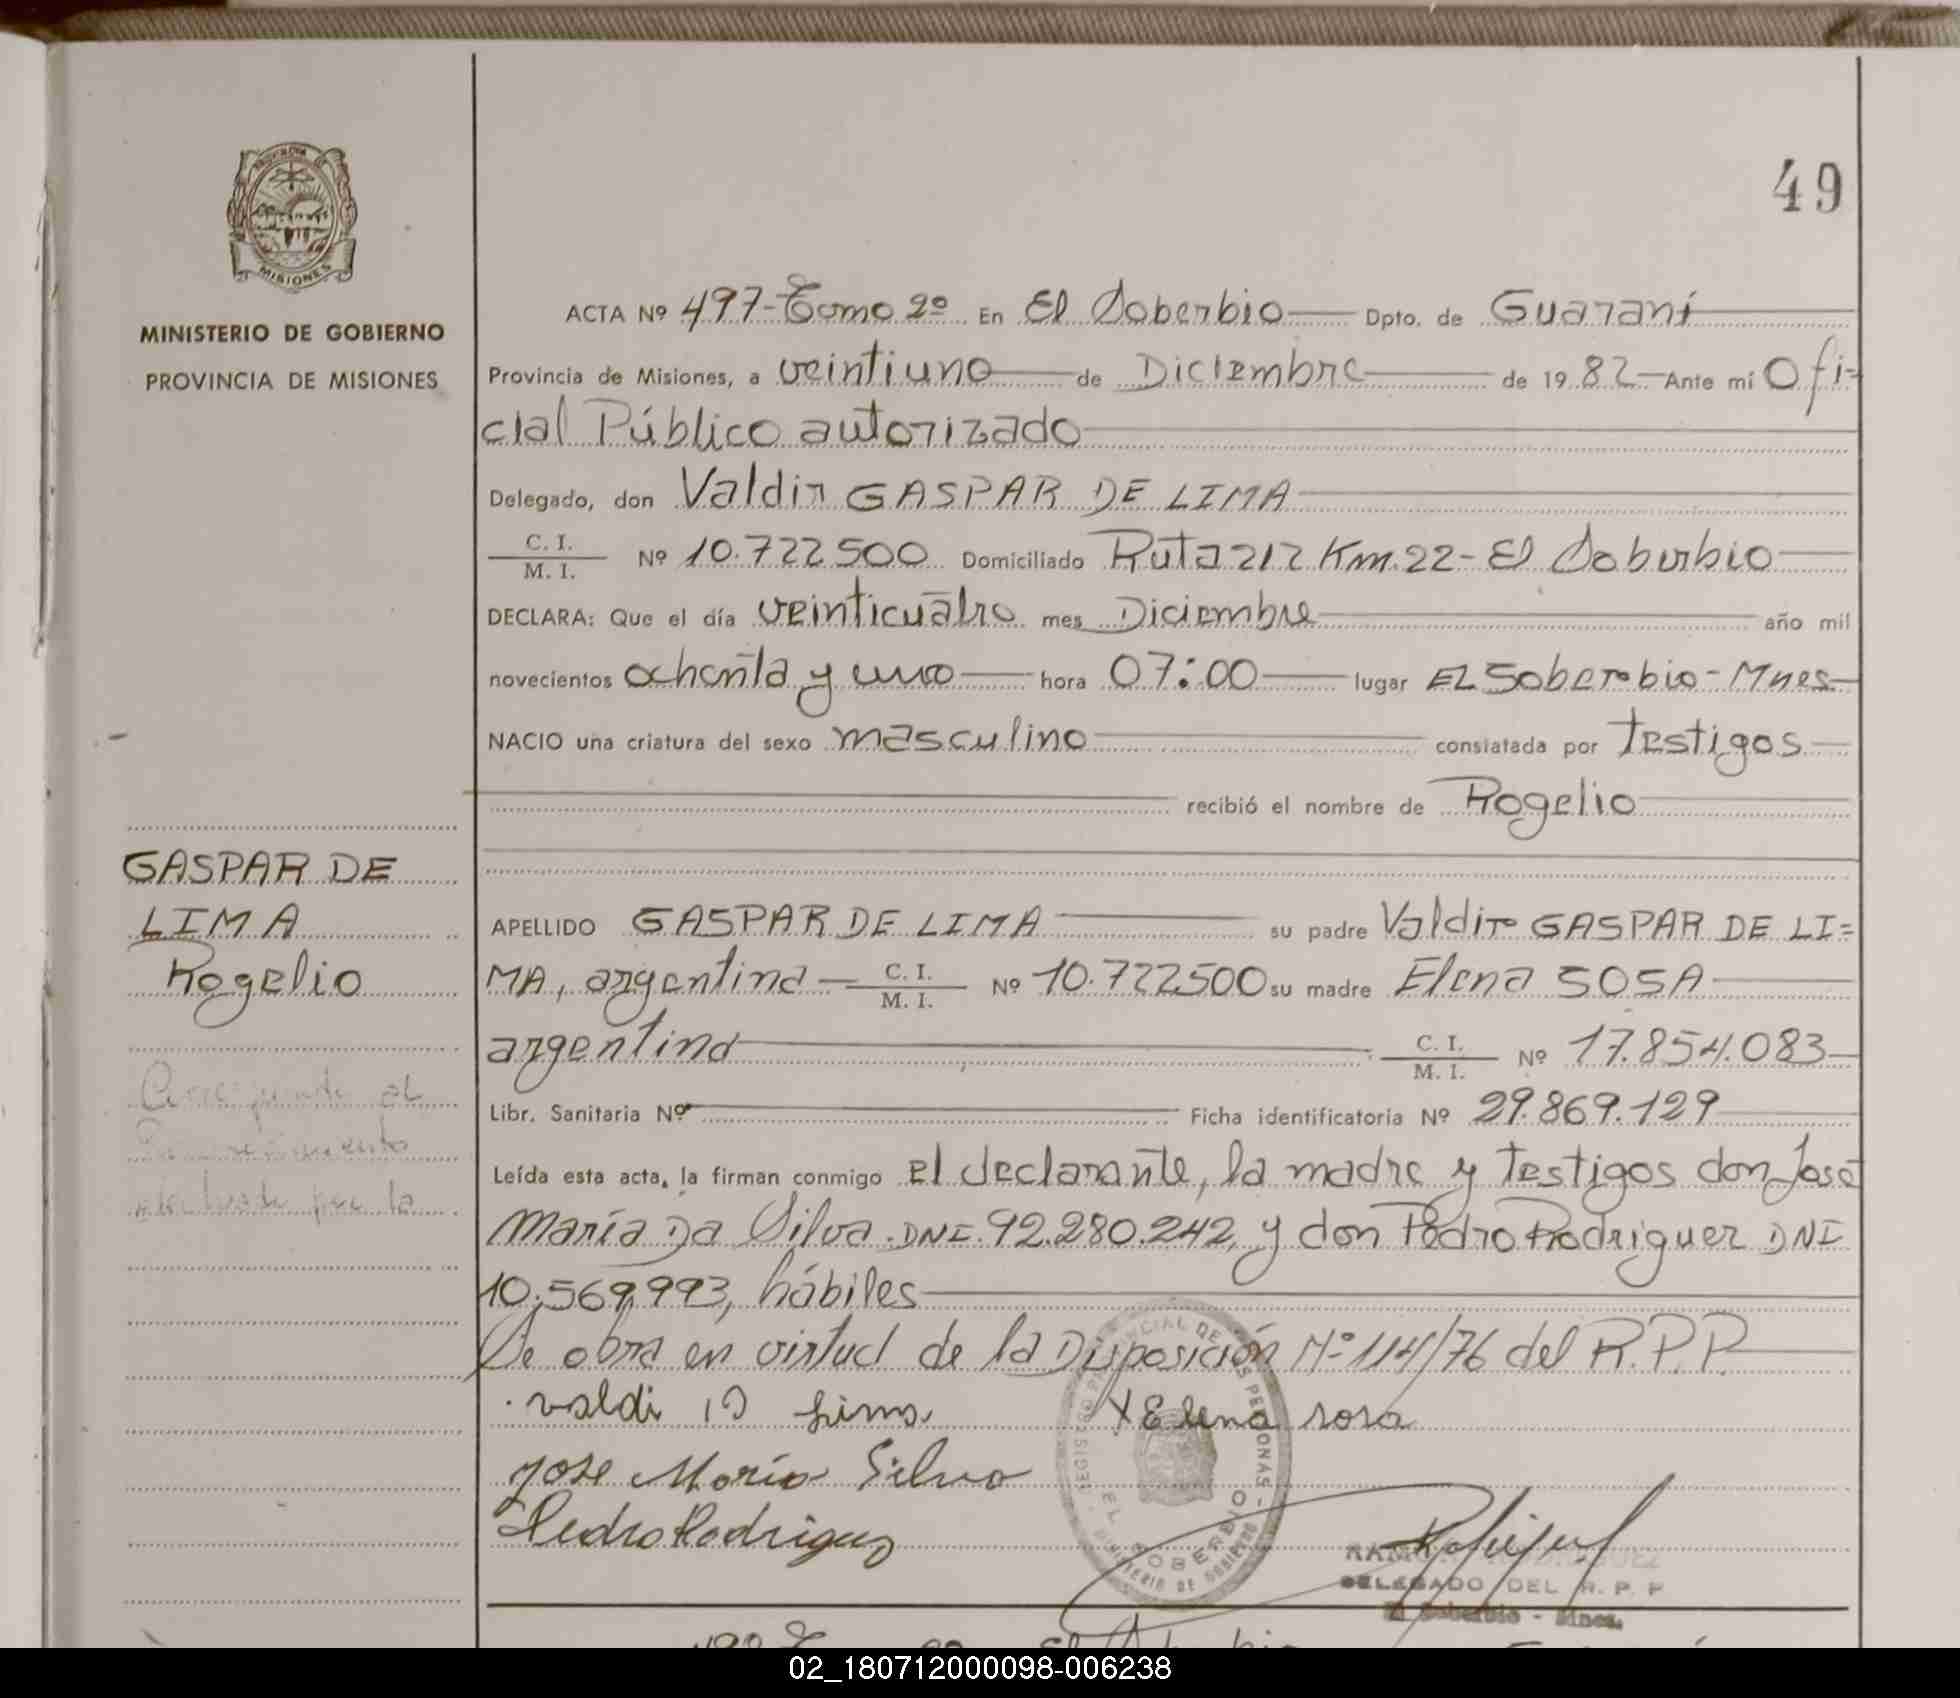 49
MINISTERIO DE GOBIERNO
PROVINCIA DE MISIONES
MISIONES
ACTA Nº 497-Tomo 2º En El Soberbio Dpto. de Guaraní
Provincia de Misiones, a veintiuno de Diciembre de 1982 Ante mí Ofi-
cial Público autorizado
Delegado, don Valdir GASPAR DE LIMA
C. I.
M. I. Nº 10.722.500 Domiciliado Ruta 212 Km.22- El Soberbio
DECLARA: Que el día veinticuatro mes Diciembre año mil
novecientos ochenta y uno hora 07:00 lugar El Soberbio - Mnes
NACIO una criatura del sexo masculino constatada por Testigos
recibió el nombre de Rogelio
GASPAR DE
LIMA
Rogelio
APELLIDO GASPAR DE LIMA su padre Valdir GASPAR DE LI=
MA, argentina C. I.
M. I. Nº 10.722500 su madre Elena SOSA
argentina C. I.
M. I. Nº 17.854.083
Libr. Sanitaria Nº Ficha identificatoria Nº 29.869.129
Leída esta acta, la firman conmigo el declarante, la madre y Testigos don José
María Da Silva. DNI. 92.280.242, y don Pedro Rodriguez DNI
10.569.993, hábiles
Se obra en virtud de la Disposición Nº 114/76 del R.P.P
valdi D lima
X Elena sosa
Jose Maria Silva
Pedro Rodriguez
REGISTRO PROVINCIAL DE LAS PERSONAS
EL SOBERBIO
MINISTERIO DE GOBIERNO
DELEGADO DEL R. P. P
El Soberbio - Mnes.
02_180712000098-006238